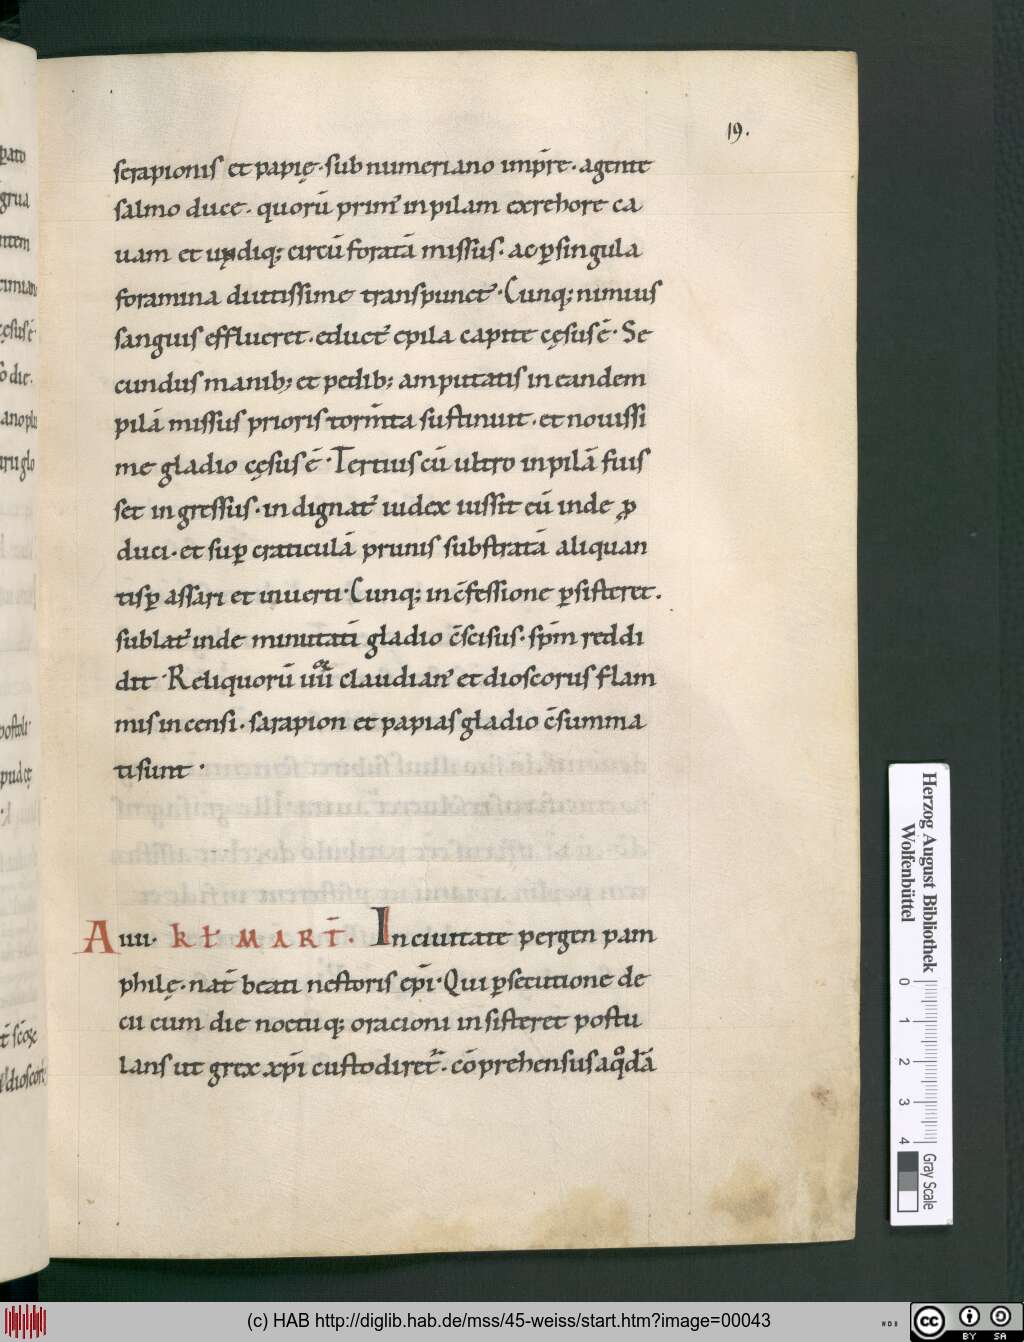 19.
serapionis et papię. sub numeriano imp̄re. agente
salmo duce. quorū prim᷒ in pilam exrehore ca
uam et undiq; circū foratā missus. ac ꝑ singula
foramina diutissime transpunct᷒. Cunq; nimius
sanguis efflueret. educt᷒ e pila capite cęsus ē. Se
cundus manib; et pedib; amputatis in eandem
pilā missus prioris torm̄ta sustinuit. et nouissi
me gladio cęsus ē. Tertius cū ultro in pilā fuis
set ingressus. indignat᷒ iudex iussit eū inde ꝓ
duci. et suꝑ craticulā prunis substratā aliquan
tisꝑ assari et inuerti. Cunq; in c̄fessione ꝑsisteret.
sublat᷒ inde minutati gladio c̄scisus. sp̄m reddi
dit. Reliquorū claudian᷒ et dioscorus flam
mis incensi. sarapion et papias gladio c̄summa
ti sunt.
A iiii. Kƚ MART̄. In ciuitate pergen pam
philę. nat̄ beati nestoris ep̄i. Qui ꝑsecutione de
cii cum die noctuq; oracioni insisteret postu
lans ut grex xp̄i custodiret᷑. cōprehensus a qͦdā
pato
grua
item
cęsus ē
o die.
ano
glo
postoli
Herzog August Bibliothek
Wolfenbüttel
0 1 2 3 4
Gray Scale
(c) HAB http://diglib.hab.de/mss/45-weiss/start.htm?image=00043
cc BY SA